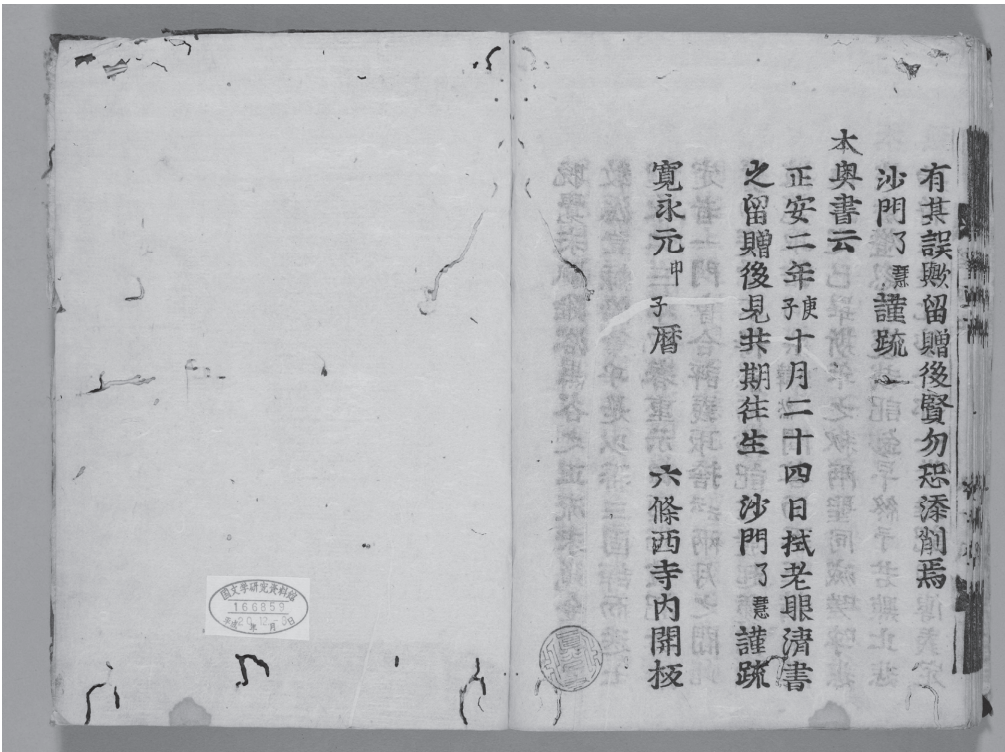 有其誤歟留贈後賢勿恐添削焉
沙門了慧謹疏
本奥書云
正安二年庚子十月二十四日拭老眼清書
之留贈後見共期往生 沙門了慧謹疏
寛永元甲子暦 六條西寺内開板
国文学研究資料館
166859
平成20.12. 年月日